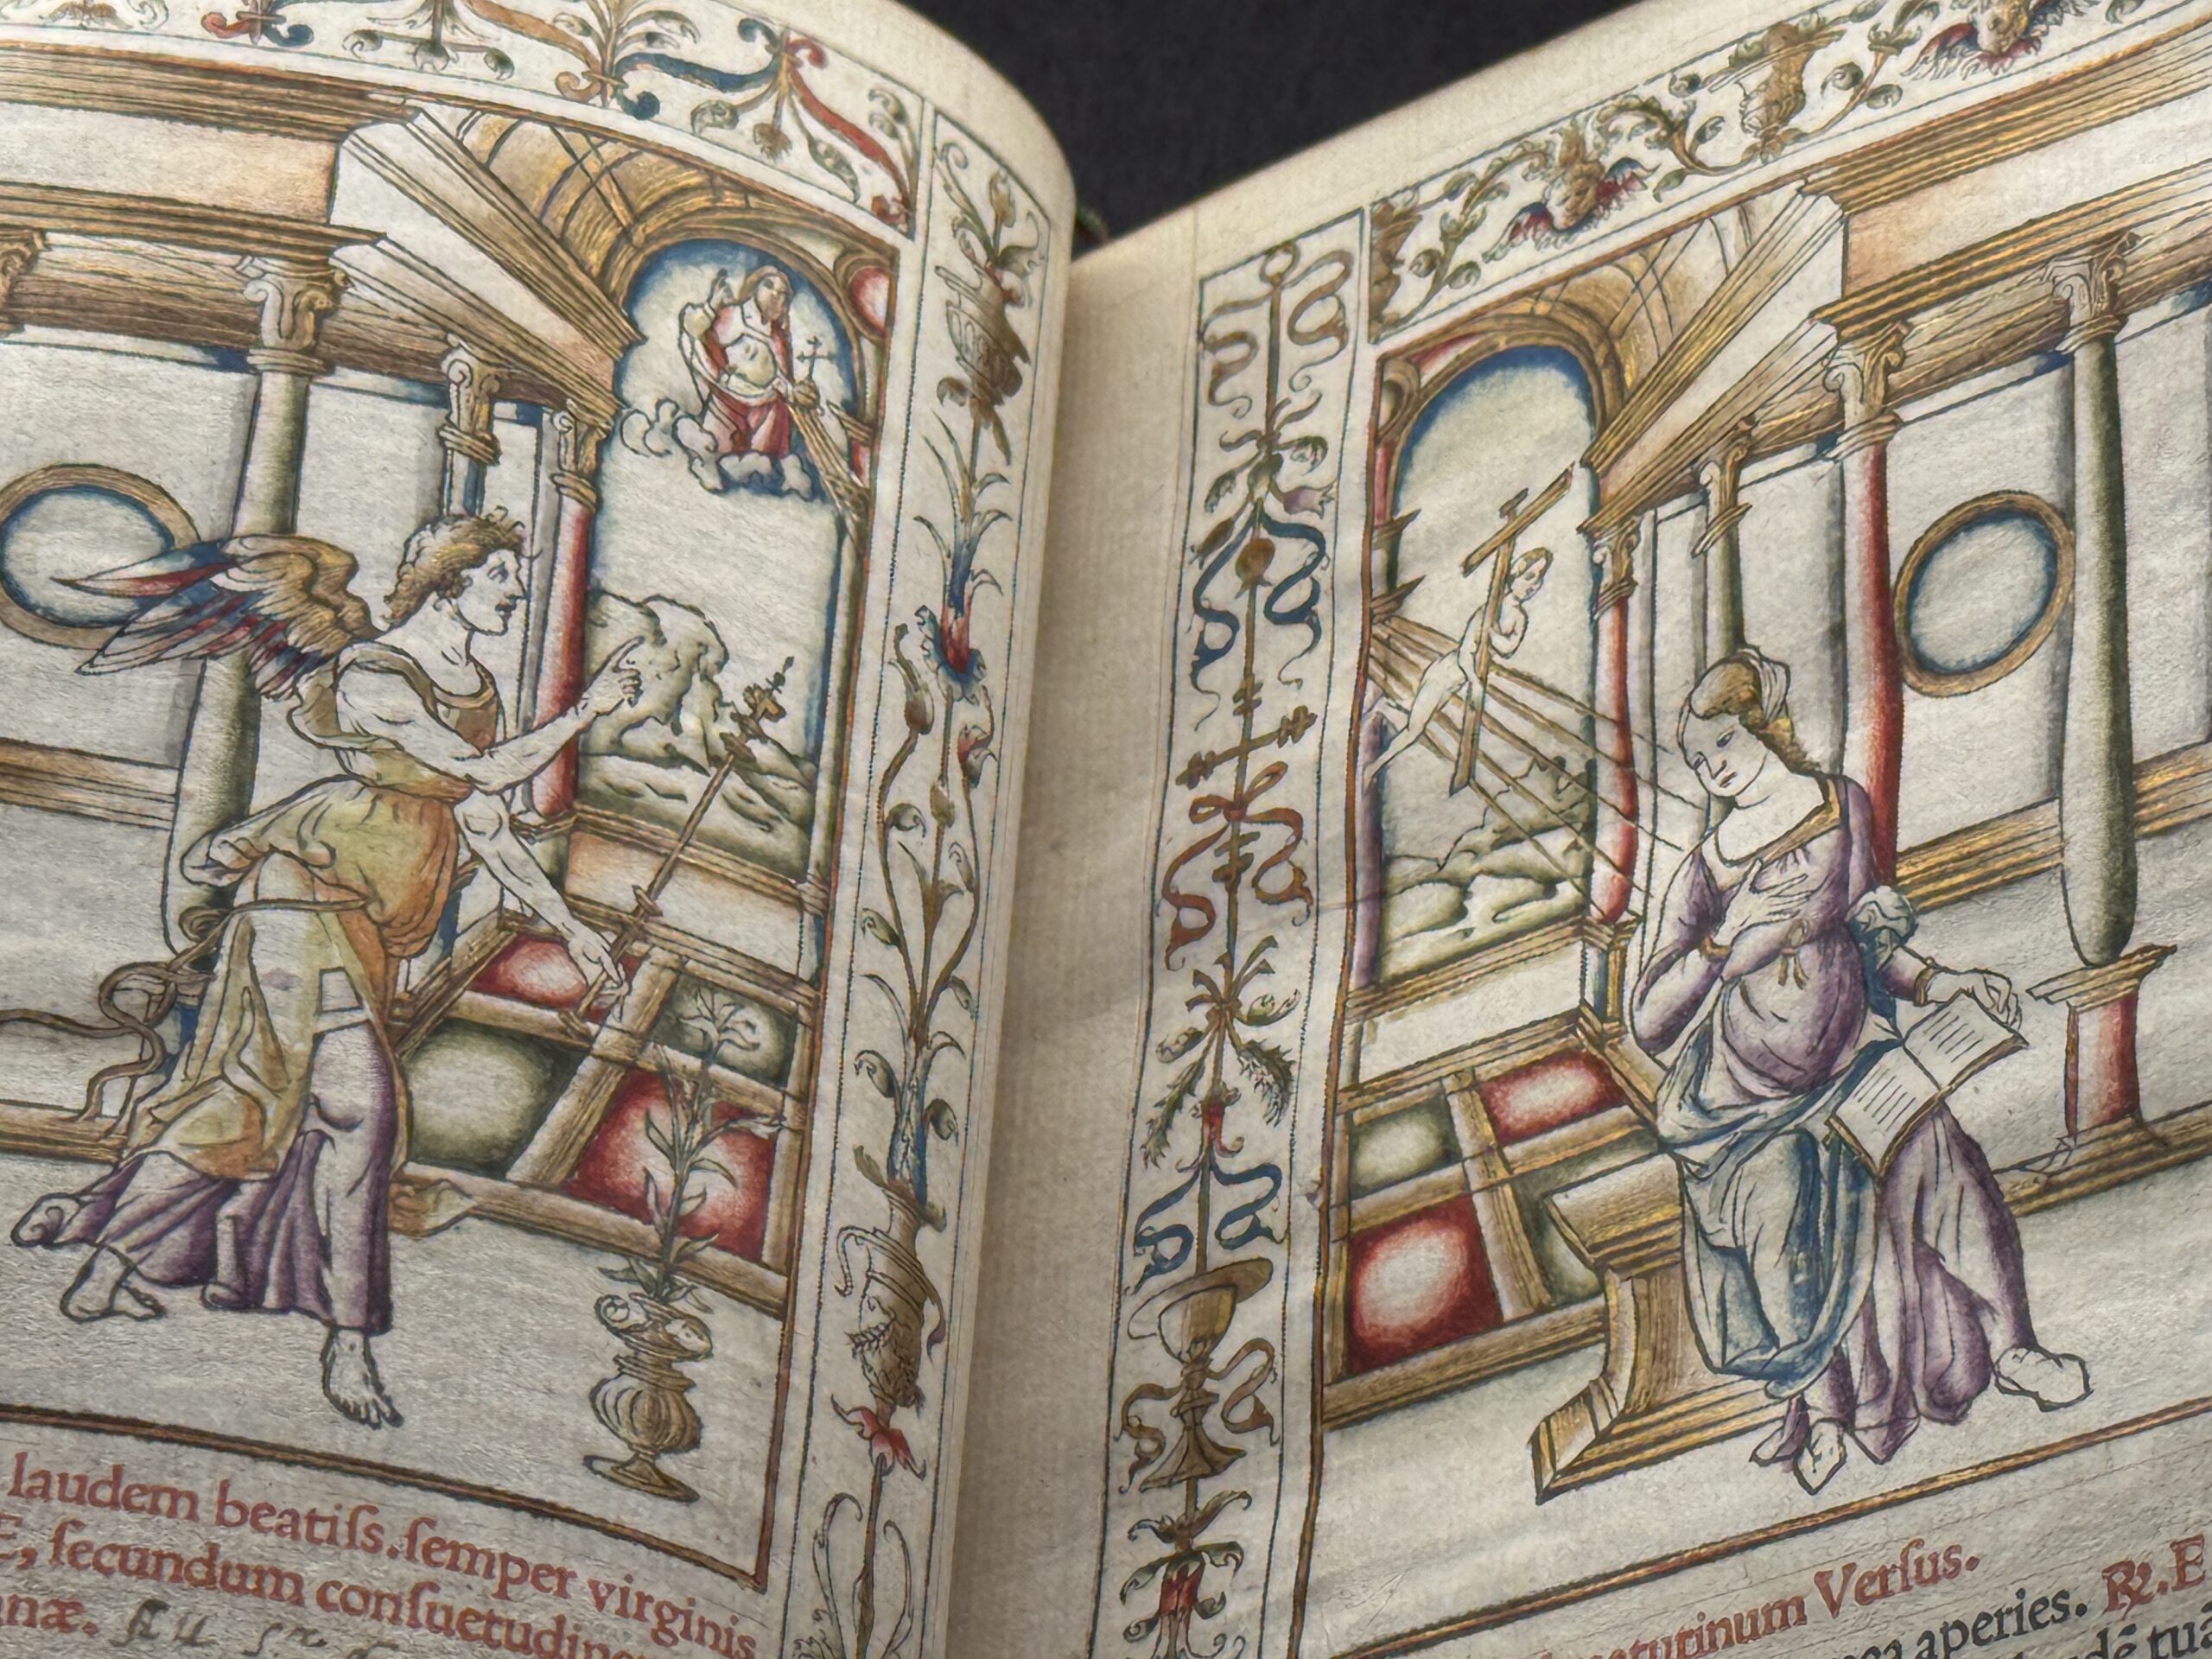 laudem beatiſs. ſemper virginis
E, ſecundum conſuetudine
næ.
Verſus.
aperies. ℟. E
tuã